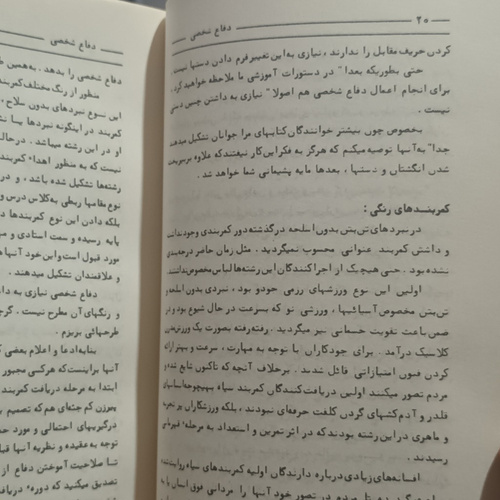 ۲۰ — دفاع شخصی
کردن حریف مقابل را ندارند، نیازی به این تغییر فرم دادن دستها نیست.
حتی بطوریکه بعدا" در دستورات آموزشی ما ملاحظه خواهید کرد.
برای انجام اعمال دفاع شخصی هم اصولا" نیازی به داشتن چنین دستی
نیست.
بخصوص چون بیشتر خوانندگان کتابهای مرا جوانان تشکیل میدهند
جدا" به آنها توصیه میکنم که هرگز به فکر این کار نیفتند که علاوه بر بدریخت
شدن انگشتان و دستها، بعدها مایه پشیمانی شما خواهد شد.
کمربندهای رنگی:
در نبردهای تن بتن بدون اسلحه در گذشته دور کمربندی وجود نداشت
و داشتن کمربند عنوانی محسوب نمیگردید. مثل زمان حاضر درجه‌بندی
نشده بود. حتی هیچیک از اجراکنندگان این رشته‌ها لباس مخصوص نداشتند.
اولین این نوع ورزشهای رزمی جودو بود، نبردی بدون اسلحه و
تن بتن مخصوص آسیائیها، ورزشی نو که بسرعت در حال شیوع بود و در
ضمن باعث تقویت جسمانی نیز میگردید. رفته رفته بصورت یک ورزش مدرن
کلاسیک درآمد. برای جودکاران با توجه به مهارت، سرعت و بهتر ارائه
کردن فنون امتیازاتی قائل شدند. برخلاف آنچه که تاکنون شایع شده و
مردم تصور میکنند اولین دریافت کنندگان کمربند سیاه بهیچوجه انسانهای
قلدر و آدم کشهای گردن کلفت حرفه‌ای نبودند، بلکه ورزشکاران پر تجربه
و ماهری در این رشته بودند که در اثر تمرین و استعداد به مرحله قهرمانی
رسیدند.
افسانه‌های زیادی درباره دارندگان اولیه کمربندهای سیاه روایت شده
مردم در تصور خود آنها را مردانی فوق انسان یا به
دفاع شخصی
دفاع شخصی را بدهد. به همین
منظور از رنگ مختلف کمربند
این نوع نبردهای بدون سلاح،
کمربند در اینگونه نبردها بسا
او در این رشته میباشد. درحال
نیست که به منظور اهداء کمربند
رشته‌ها تشکیل شده باشد، و در
نوع مقامها ربطی به کلاس درس و
بلکه دادن این نوع کمربندها
پایه رسیده و سمت استادی و
مورد قبول است و این خود آنها
و علاقمندان تشکیل میدهند.
دفاع شخصی نیازی به
و رنگهای آن مطرح نیست. گرچه
طرحهائی بزیزم.
بنا به ادعا و اعلام بعضی
آنها براینست که هرکسی مجبور
ابتدا به مرحله دریافت کمربند
پیرزن کم جثه‌ای هم که تصمیم
درگیریهای احتمالی و مورد
توجه به عقیده و نظریه آنها
تا صلاحیت آموختن دفاع از
تصدیق میکنید که دوره